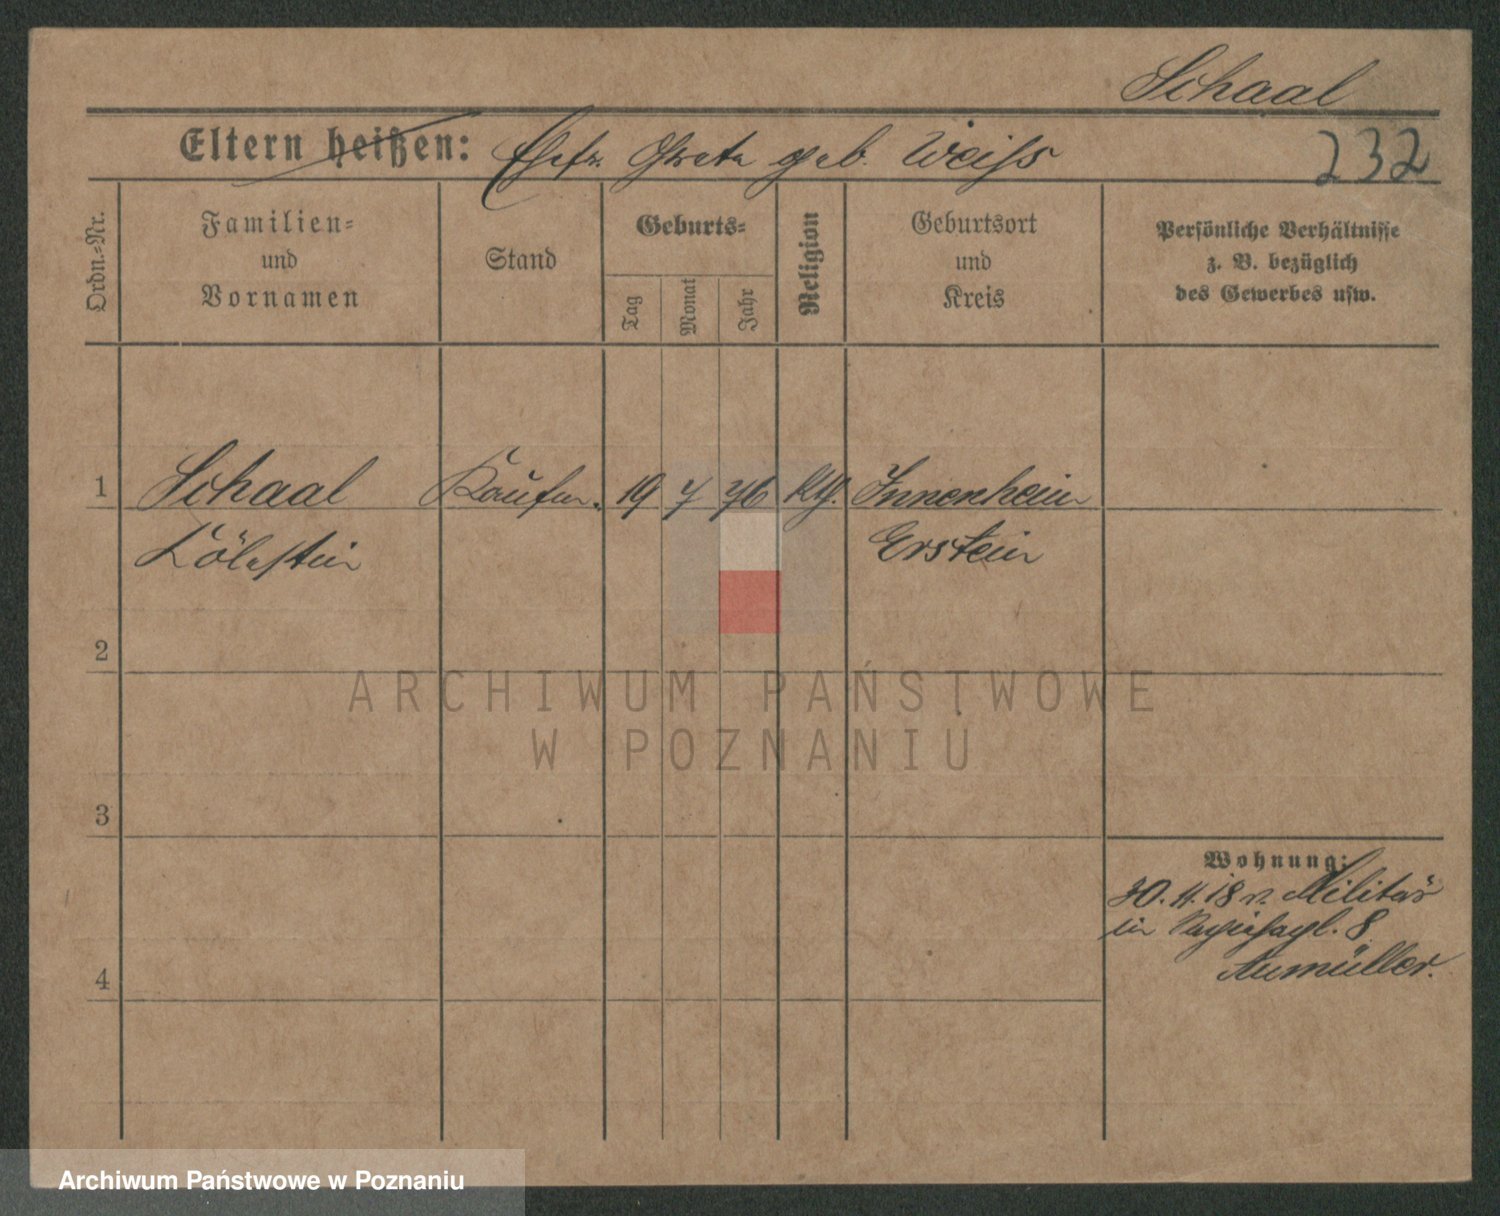 Schaal
Eltern heißen: Ehefr. Grete geb. Weiss
232
Ordn.=Nr.
Familien=
und
Vornamen
Stand
Geburts=
Tag
Monat
Jahr
Religion
Geburtsort
und
Kreis
Persönliche Verhältnisse
z. B. bezüglich
des Gewerbes usw.
1 Schaal Kaufm. 19 7 76 kth. Innenheim
Cölestin Erstein
2
ARCHIWUM PAŃSTWOWE
W POZNANIU
3
Wohnung:
30.11.18 v. Militär
in 8
Aumüller.
4
Archiwum Państwowe w Poznaniu